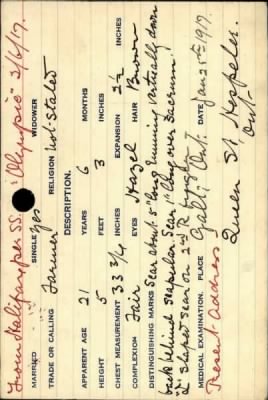 From Halifax per SS. "Olympic" 2/6/17.
MARRIED SINGLE Yes WIDOWER
TRADE OR CALLING Farmer RELIGION Not Stated
DESCRIPTION.
APPARENT AGE 21 YEARS 6 MONTHS
HEIGHT 5 FEET 3 INCHES
CHEST MEASUREMENT 33 3/4 INCHES EXPANSION 2½ INCHES
COMPLEXION Fair EYES Hazel HAIR Brown
DISTINGUISHING MARKS Scar about 5" long running vertically down
back behind scapular. Scar 1" long over Sacrum.
"L" shaped scar on 2nd R.
MEDICAL EXAMINATION. PLACE Galt Ont. DATE Jan 25th 1917.
Present Address Queen St. Hespeler.
Ont.